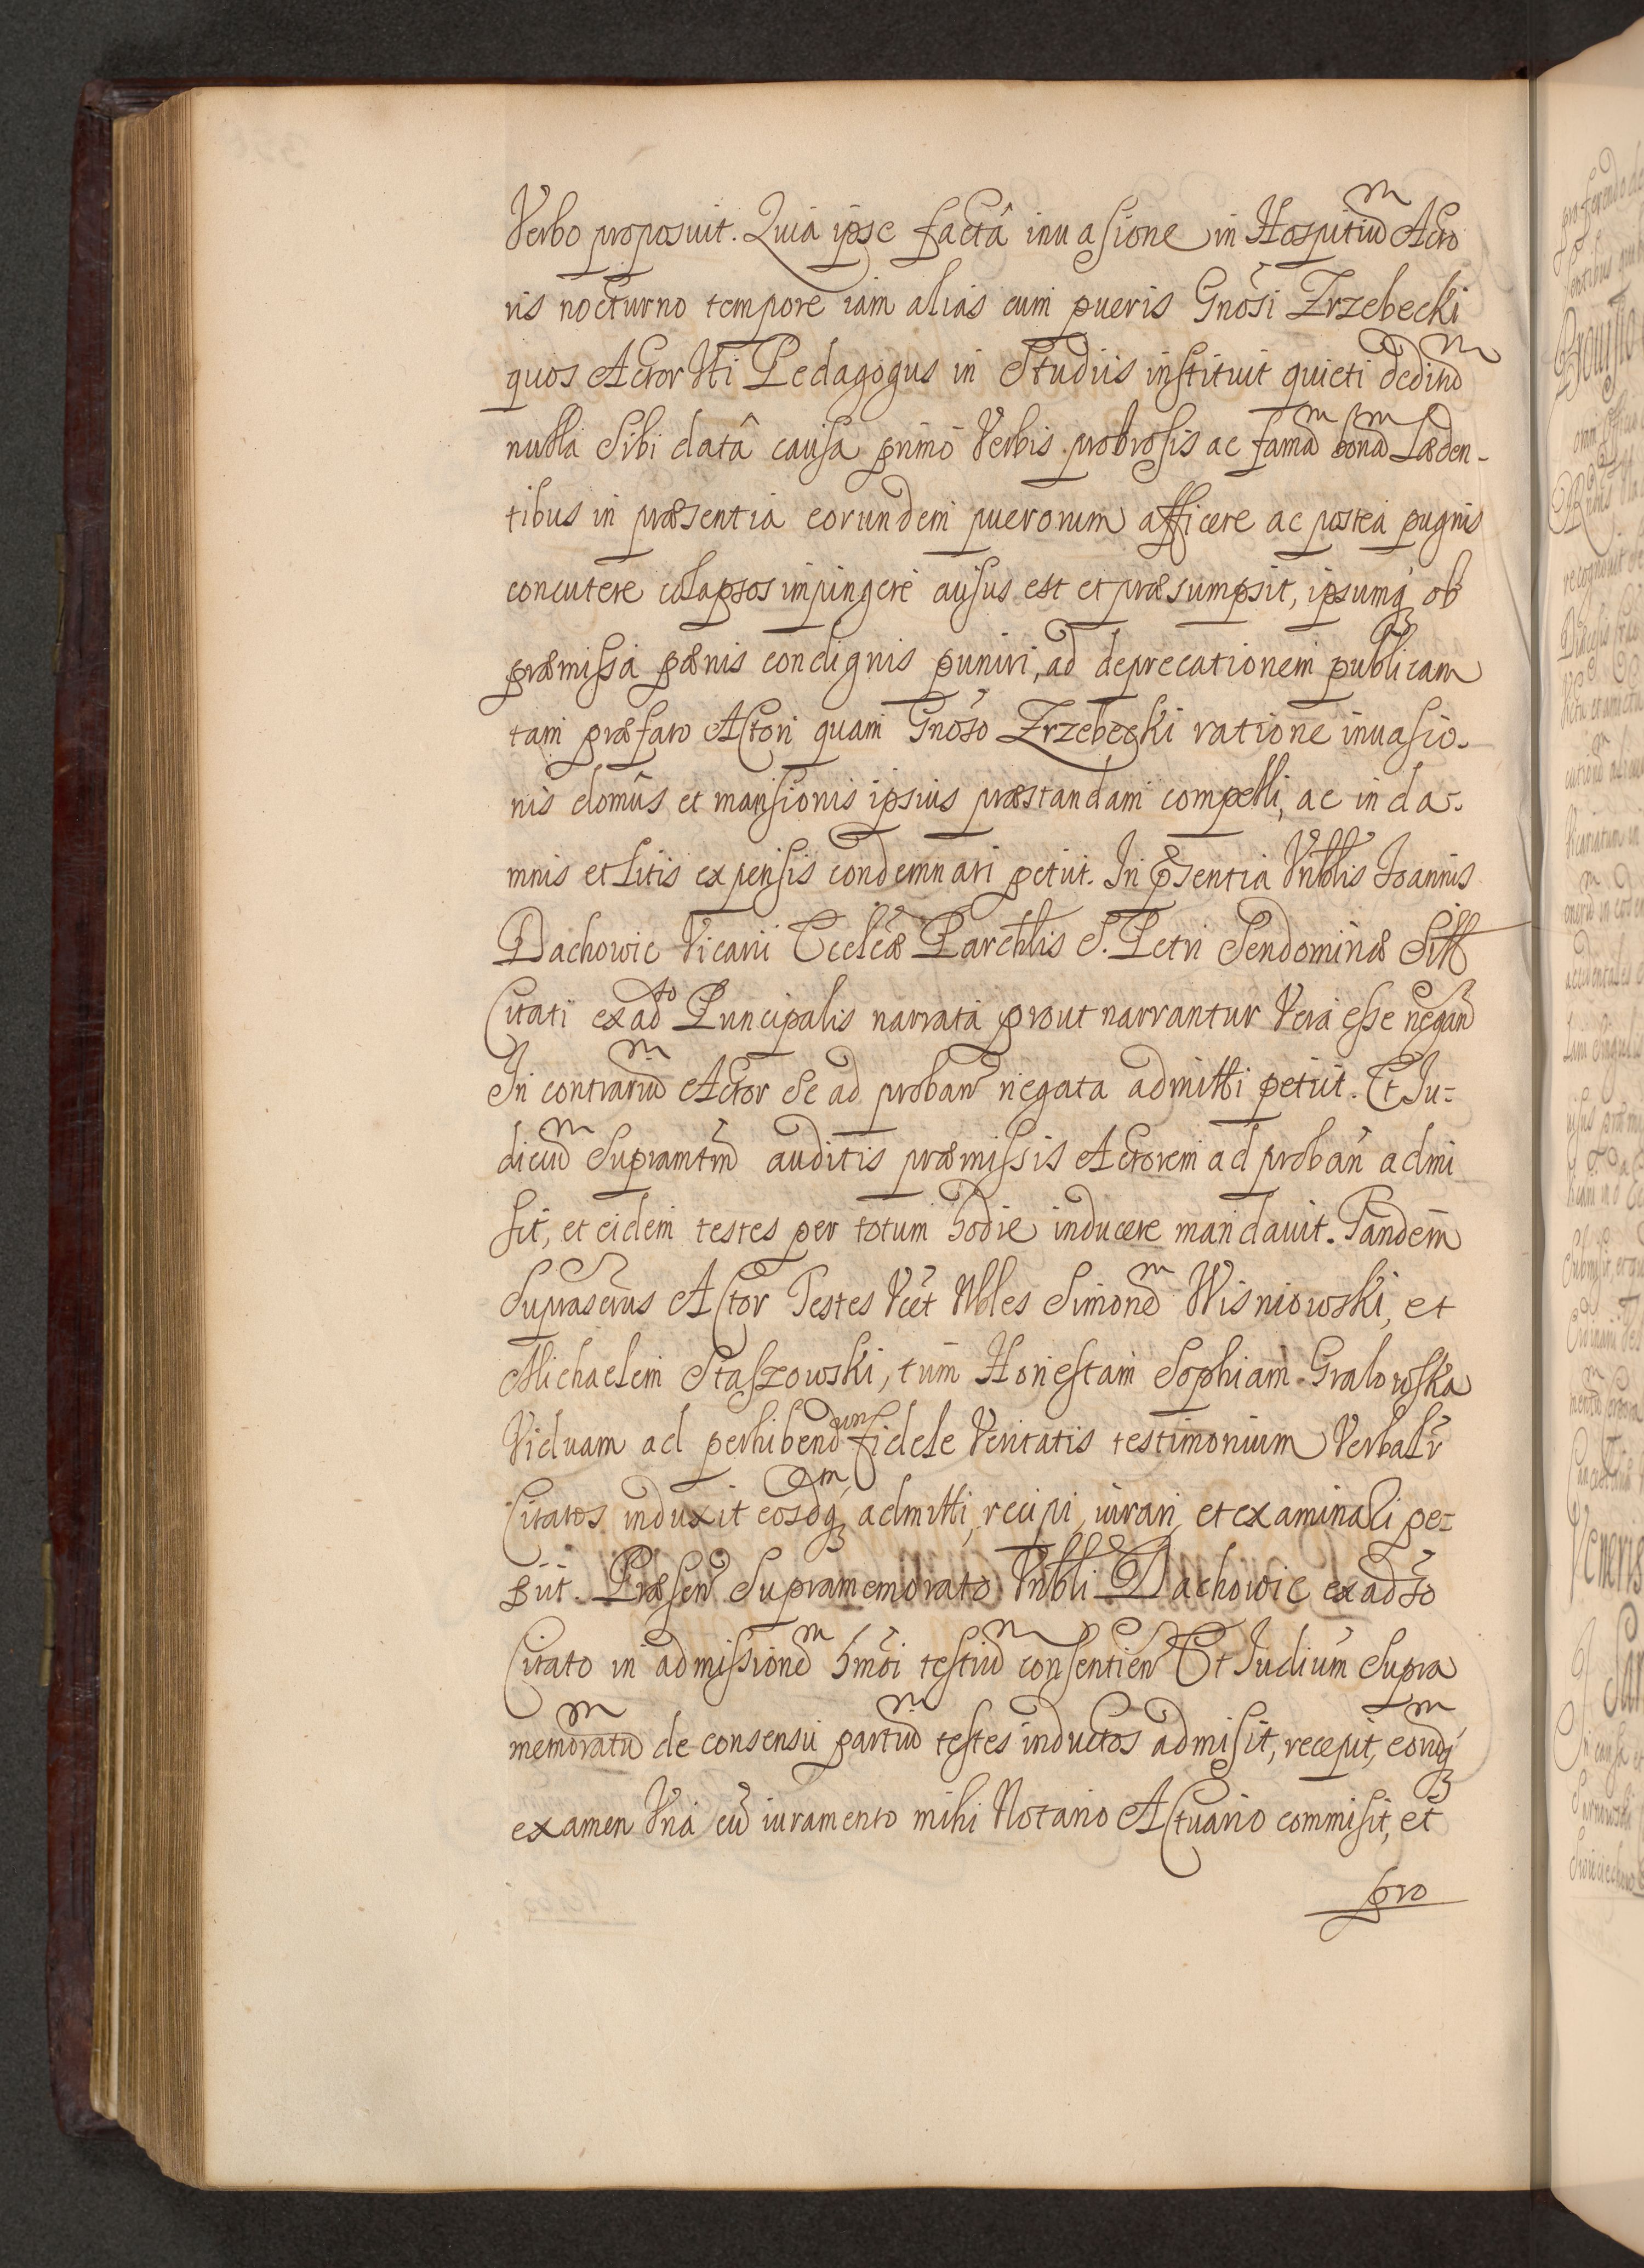 Verbo proposuit. Quia ipse factâ inuasione in Hospitiũ Acto
ris nocturno tempore iam alias cum pueris Gnosi Zrzebecki
quos Actor Uti Pedagogus in Studiis instituit quieti deditũ
nulla Sibi datâ causa primo Verbis probrosis ac famã bonã Læden-
tibus in præsentia eorundem puerorum afficere ac postea pugnis
concutere colapsos impingere ausus est et præsumpsit, ipsumq ob
præmissa pænis condignis puniri, ad deprecationem publicam
tam præfato Actori quam Gnoso Zrzebecki ratione inuasio-
nis domûs et mansionis ipsius præstandam compelli, ac in da-
mnis et Litis expensis condemnari petiit. In Psentia Vnblis Joannis
Dachowic Vicarii Eccleæ Parchlis S. Petri Sendominæ Sitt
Citati ex adto Principalis narrata prout narrantur Vera esse negan
In contrariũ Actor Se ad proban negata admitti petiit. Et Ju-
diciũ Supramtm auditis præmissis Actorem ad proban admi
sit, et eidem testes per totum hodie inducere mandauit. Tandem
Suprascrus Actor Testes Vcet Nbles Simonẽ Wisniowski, et
Michaelem Staszowski, tum Honestam Sophiam Gralowska
Viduam ad perhibendum fidele Veritatis testimonium Verbalr
Citatos induxit eosdemq admitti, recipi, iurari, et examinari pe-
tiit. Præsen Supramemorato Vnbli Dachowic ex adto
Citato in admissionẽ hmoi testiũ consentien Et Judium Supra
memoratũ de consensu partiũ testes inductos admisit, recepit, eorudq
examen Vna cũ iuramento mihi Notario Actuario commisit, et
pro